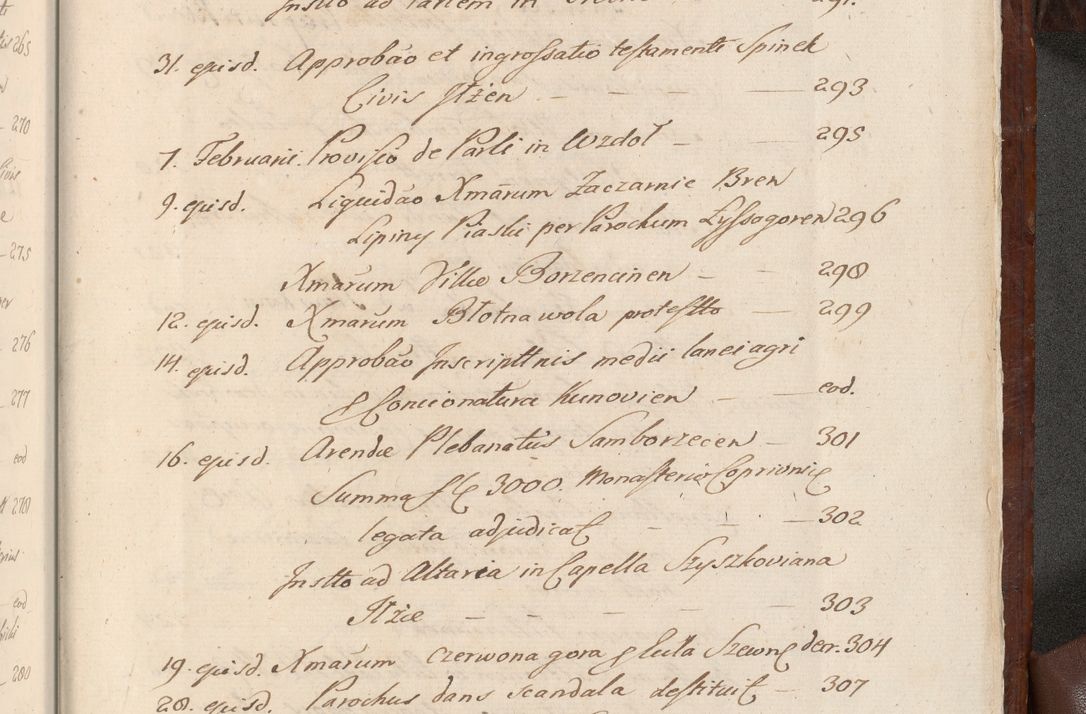 Instto ad
31. ejusd. Approbão et ingrossatio testamenti Spinek
Civis Itzen — — — 293
7. Februarii. Provisio de Parli in Wzdol — 295
9. ejusd. Liquidão Xmarum Zaczarnie Bren
Lipiny Piaski per Parochum Łyssogoren 296
Xmarum Villæ Borzencinen — — 298
12. ejusd. Xmarum Błotna wola protestto — 299
14. ejusd. Approbão Inscripttnis medii lanei agri
Concionatura Kunovien — — eod.
16. ejusd. Arendæ Plebanatus Samborzecen — 301
Summa 3000. Monasterio
legata adjudicat — — — 302
Instto ad Altaria in Capella Szyszkoviana
Itzæ — — — — — 303
19. ejusd. Xmarum Czerwona gora 304
28. ejusd. Parochus dans scandala destituit — 307
265
270
275
276
277
eod
278
eod
280